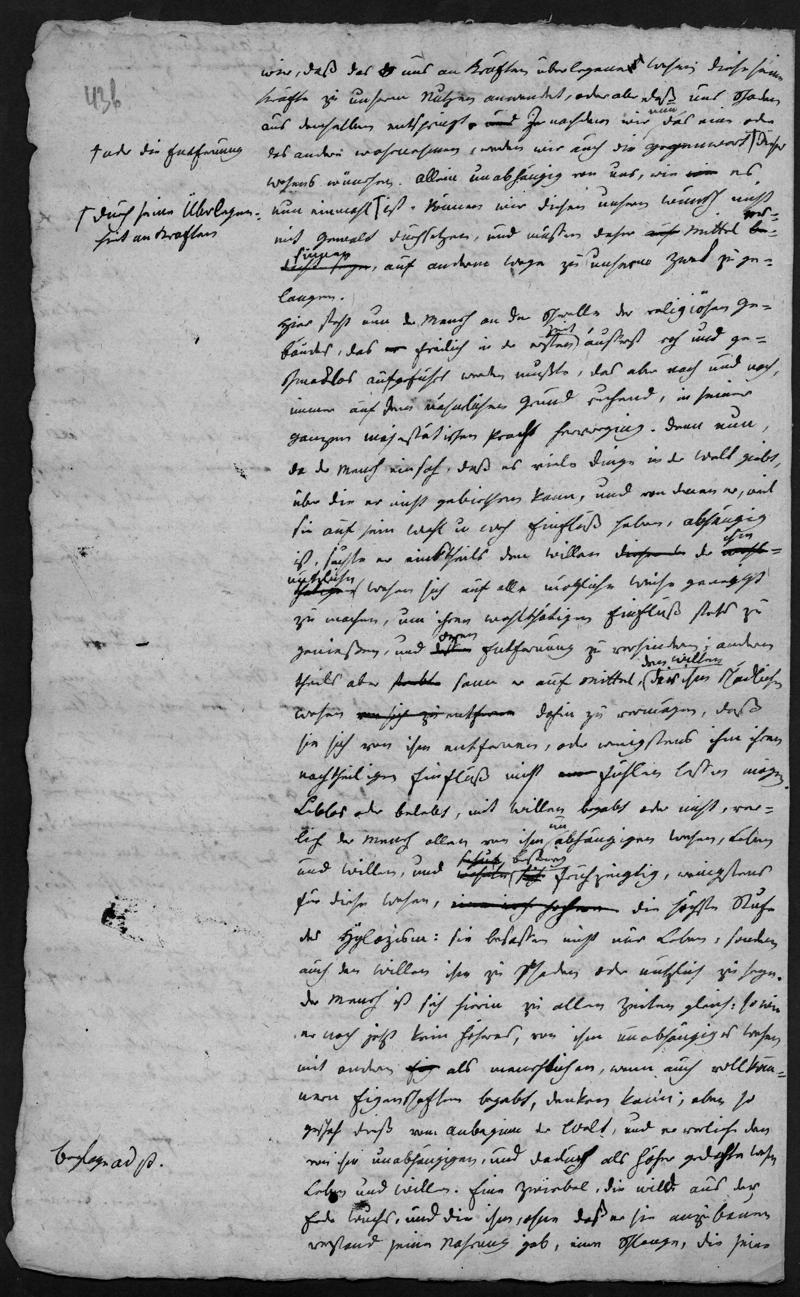 43b
wir, daß das uns an Kräften überlegene Wesen diese seine
Kräfte zu unserm Nutzen anwendet, oder aber daß uns Schaden
aus denselben entspringt. Je nachdem wir nun das eine oder
† oder die Entfernung
das andere wahrnehmen, werden wir auch die Gegenwart † dieses
Wesens wünschen. Allein unabhängig von uns, wie es
† durch seine Überlegen-
heit an Kräften
nun einmahl † ist, können wir diesen unsern Wunsch nicht
mit Gewalt durchsetzen, und müssen daher auf Mittel
, auf anderm Wege zu unserm Zweck zu ge-
langen.
Hier steht nun der Mensch an der Schwelle des religiösen Ge-
bäudes, das freilich in der ersten Zeit äußerst roh und ge-
schmacklos aufgeführt werden mußte, das aber nach und nach,
immer auf dem nähmlichen Grund ruhend, in seiner
ganzen majestätischen Pracht hervorging. Denn nun,
da der Mensch einsah, daß es viele Dinge in der Welt giebt,
über die er nicht gebiethen kann, und von denen er, weil
sie auf sein Wohl u Weh Einfluß haben, abhängig
ist, suchte er einstheils den Willen der ihm
nützlichen Wesen sich auf alle mögliche Weise geneigt
zu machen, um ihren wohlthätigen Einfluß stets zu
genießen, und deren Entfernung zu verhindern; andern
theils aber sann er auf Mittel, den Willen der ihm schädlichen
Wesen dahin zu vermögen, daß
sie sich von ihm entfernen, oder wenigstens ihm ihren
nachtheiligen Einfluß nicht fühlen lassen mögen.
Leblos oder belebt, mit Willen begabt oder nicht, ver-
lieh der Mensch allen von ihm unabhängigen Wesen, Leben
und Willen, und frühzeitig, wenigstens
für diese Wesen, die höchste Stufe
des Hylozism: sie besassen nicht nur Leben, sondern
auch den Willen ihm zu schaden oder nützlich zu seyn.
Der Mensch ist sich hierin zu allen Zeiten gleich: so wie
er noch jetzt kein höheres, von ihm unabhängiges Wesen
mit andern als menschlichen, wenn auch vollkom-
nern Eigenschaften begabt, denken kann; eben so
geschah dieß vom Anbeginn der Welt, und er verlieh den
Beylage ad p.
von ihm unabhängigen, und dadurch als höher gedachten Wesen
Leben und Willen. Eine Zwiebel, die wild aus der
Erde wuchs, und die ihm, ohne daß er sie anzubauen
verstand seine Nahrung gab, eine Schlange, die seine